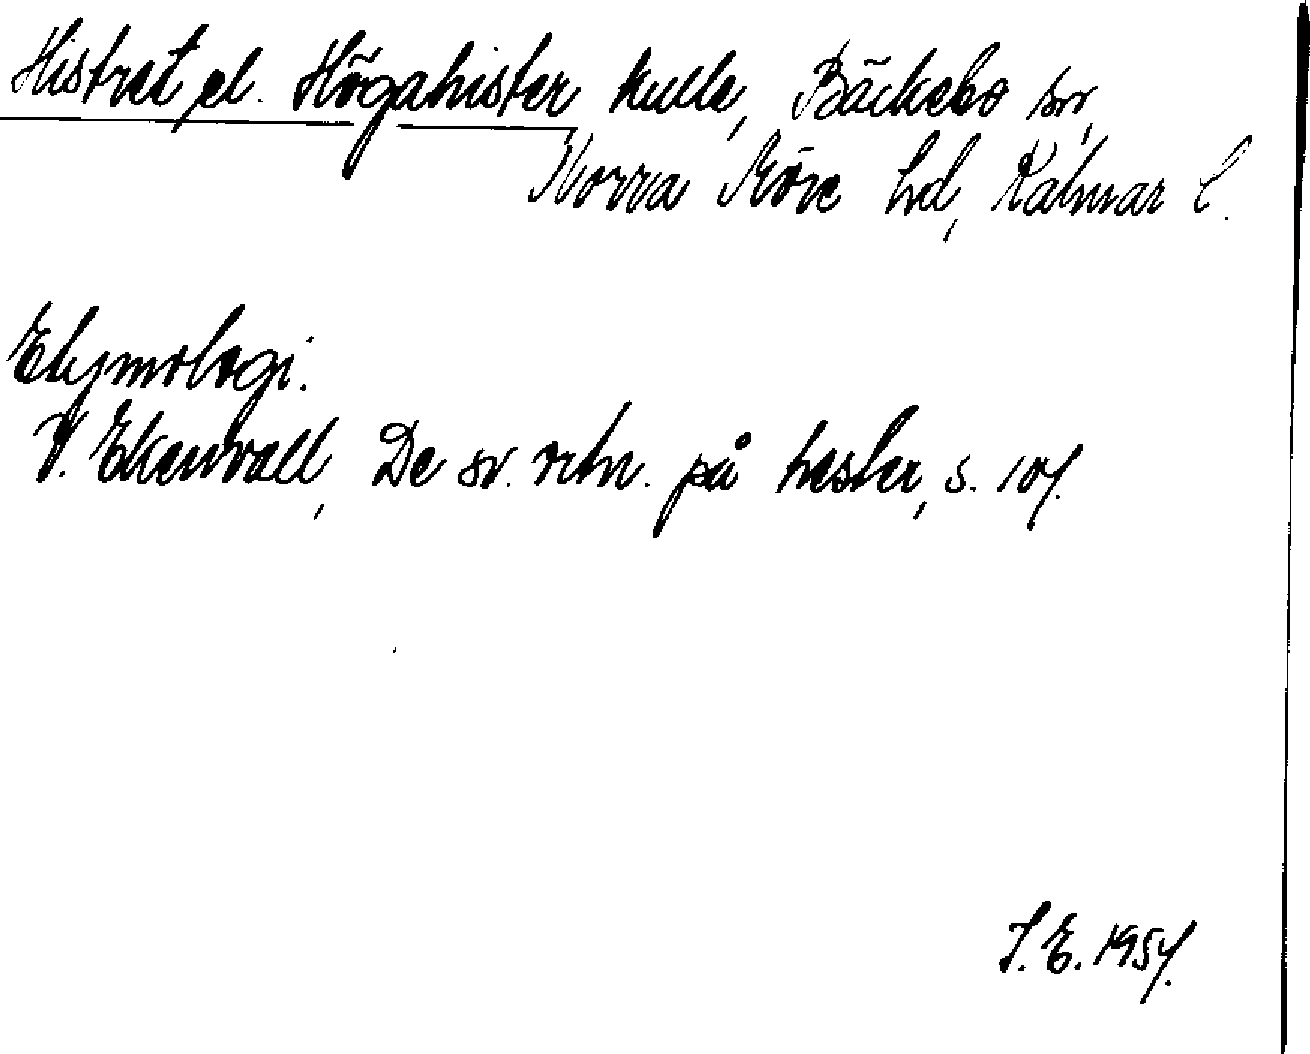 Histret el. Högahister, kulle, Bäckebo sn,
Norra Möre hd, Kalmar l.
Etymologi.
V. Ekenvall, De sv. ortn. på hester, s. 107.
S. E. 1957.